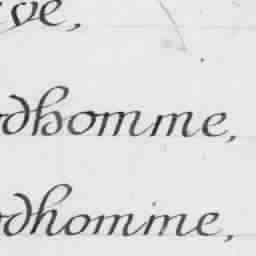 ve,
dhomme,
dhomme,